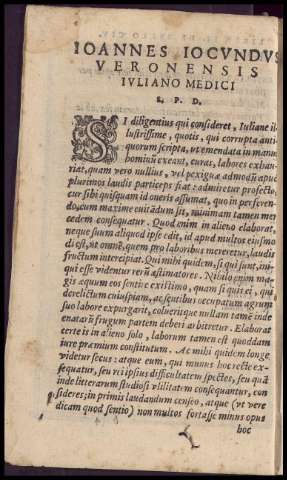 IOANNES IOCVNDVS
VERONENSIS
IVLIANO MEDICI
S. P. D.
SI diligentius qui consideret, Iuliane il-
lustrissime, quotis, qui corrupta anti-
quorum scripta, ut emendata in manus
hominū exeant, curat, labores exhau-
riat, quam vero nullius, vel pexiguæ admodū apud
plurimos laudis particeps fiat: admiretur profecto,
cur sibi quisquam id oneris assumat, quo in perferen-
do, cum maxime enitēdum sit, minimam tamen mer-
cedem consequatur. Quod enim in alieno elaborat,
neque suum aliquid ipse edit, id apud multos eiusmo
di est, ut omnē, quem pro laboribus mereretur, laudis
fructum intercipiat. Qui mihi quidem, si qui sunt, ini-
qui esse videntur rerū æstimatores. Nihilo enim ma-
gis æquum eos sentire existimo, quam si quis ei, qui
derelictum cuiuspiam, ac sentibus occupatum agrum
suo labore expurgarit, colueritque nullam tamē inde
enatarū frugum partem deberi arbitretur. Elaborat
certe is in alieno solo, laborum tamen est quoddam
iure præmium constitutum. Ac mihi quidem longe
videtur secus: atque eum, qui munus hoc recte ex-
sequatur, seu rei ipsius difficultatem spectes, seu quā
inde litterarum studiosi vtilitatem consequantur, con
sideres; in primis laudandum censeo, atque (ut vere
dicam quod sentio) non multos fortasse minus opus
hoc